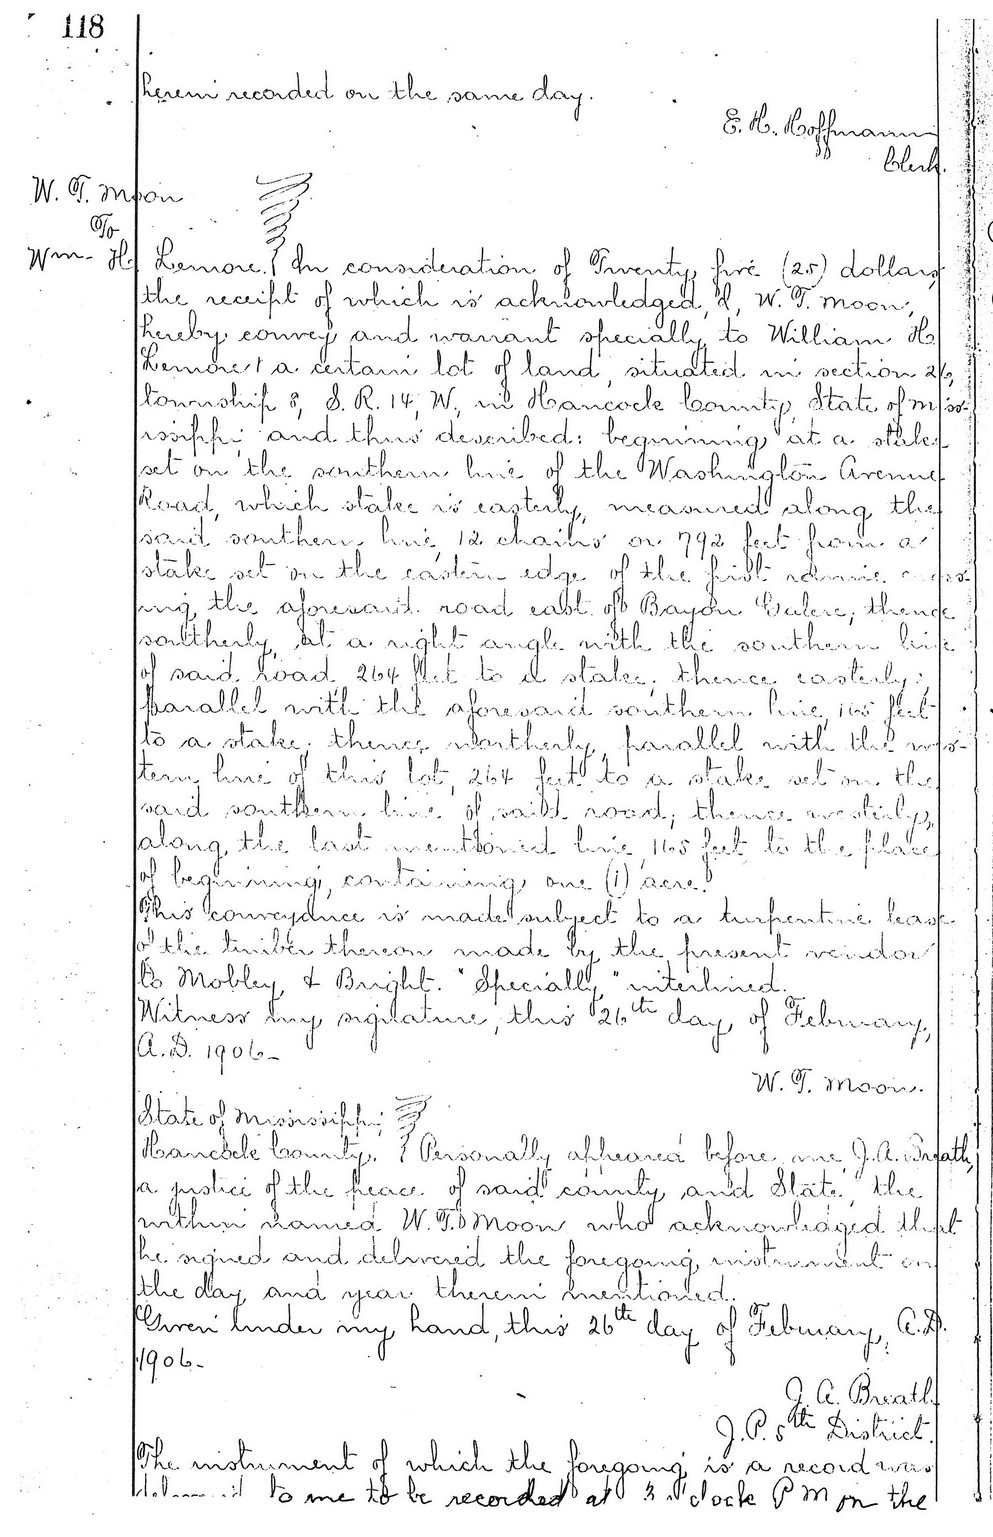 118
herein recorded on the same day.
E. H. Hoffmann
Clerk.
W. T. Moon
To
Wm. H. Lemore. In consideration of Twenty five (25) dollars
the receipt of which is acknowledged, I, W. T. Moon,
hereby convey and warrant specially to William H.
Lemore a certain lot of land, situated in section 26,
township 8, S. R. 14, W., in Hancock County, State of Miss-
issippi, and thus described: beginning at a stake
set on the southern line of the Washington Avenue
Road, which stake is easterly, measured along the
said southern line, 12 chains or 792 feet from a
stake set on the eastern edge of the first ravine cross-
ing the aforesaid road east of Bayou; thence
southerly, at a right angle with the southern line
of said road 264 feet to a stake; thence easterly,
parallel with the aforesaid southern line, 165 feet
to a stake; thence northerly, parallel with the wes-
tern line of this lot, 264 feet to a stake set on the
said southern line of said road; thence westerly,
along the last mentioned line, 165 feet to the place
of beginning, containing one (1) acre.
This conveyance is made subject to a turpentine lease
of the timber thereon made by the present vendor
to Mobley & Bright. "Specially," interlined.
Witness my signature, this 26th day of February,
A.D. 1906-
W. T. Moon.
State of Mississippi,
Hancock County. Personally appeared before me, J. A. Breath,
a justice of the peace of said county and State, the
within named W. T. Moon who acknowledged that
he signed and delivered the foregoing instrument on
the day and year therein mentioned.
Given under my hand, this 26th day of February, A.D.
1906-
J. A. Breath
J.P. 5th District.
The instrument of which the foregoing is a record was
delivered to me to be recorded at 3 o'clock P M on the